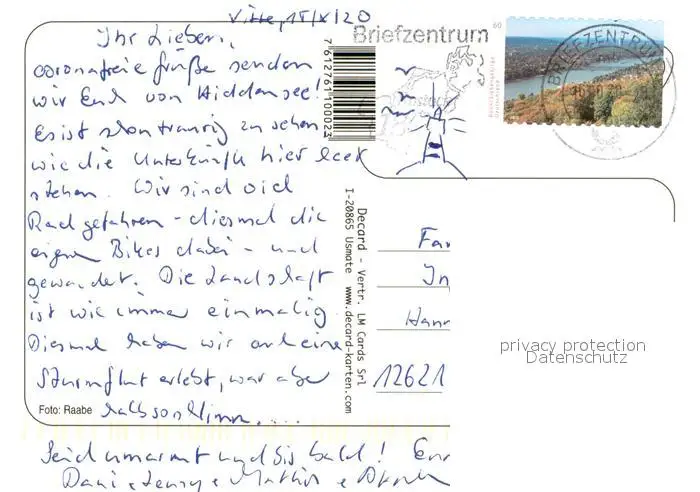 Vitte, 15/X/20
Ihr Lieben,
coronafreie Grüße senden
wir Euch von Hiddensee!
Es ist schon traurig zu sehen
wie die Unterkünfte hier leer
stehen. Wir sind viel
Rad gefahren - diesmal die
eigenen Bikes dabei - und
gewandert. Die Landschaft
ist wie immer einmalig
Diesmal haben wir auch eine
Sturmflut erlebt, war aber
halb so schlimm....
Seid umarmt und bis bald!
Dani + Jenny +
Foto: Raabe
7612761100023
Decard - Vertr. LM Cards Srl
I-20865 Usmate www.decard-karten.com
Briefzentrum
60
BRIEFZENTRUM
Fa
In
Hann
12621
privacy protection
Datenschutz